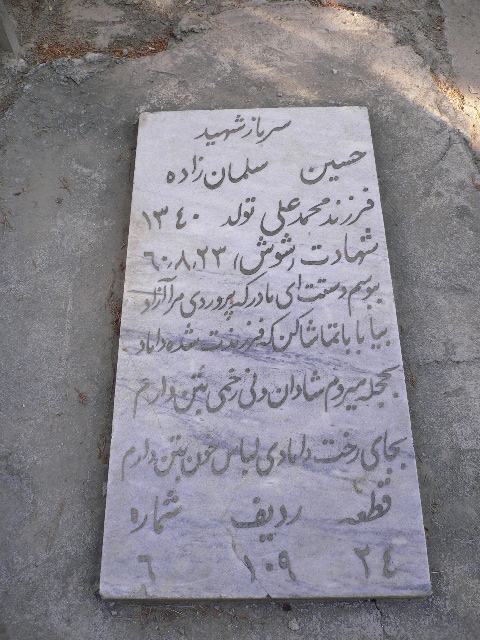 سرباز شهید
حسین سلمان زاده
فرزند محمدعلی تولد ۱۳۴۰
شهادت (شوش) ۶۰٫۸٫۲۳
ببوسم دستت ای مادر که پروردی مرا آزاد
بیا بابا تماشا کن که فرزندت شده داماد
بحجله میروم شادان ولی زخمی بتن دارم
بجای رخت دامادی لباس خون بتن دارم
قطعه ردیف شماره
۲۴ ۱۰۹ ۶